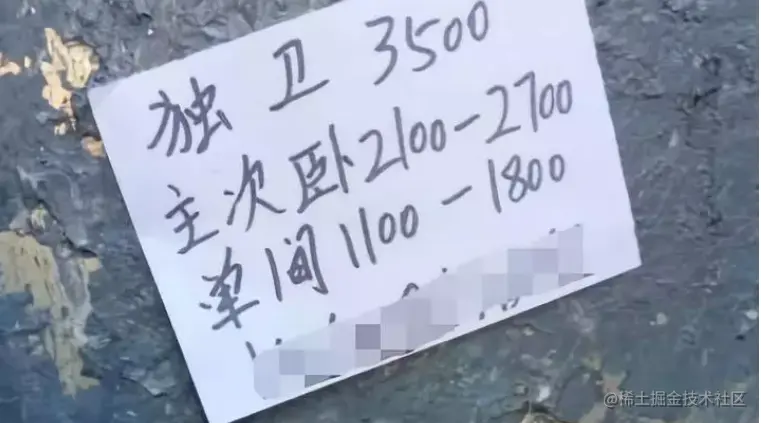 独卫 3500
主次卧2100-2700
单间1100-1800
@稀土掘金技术社区